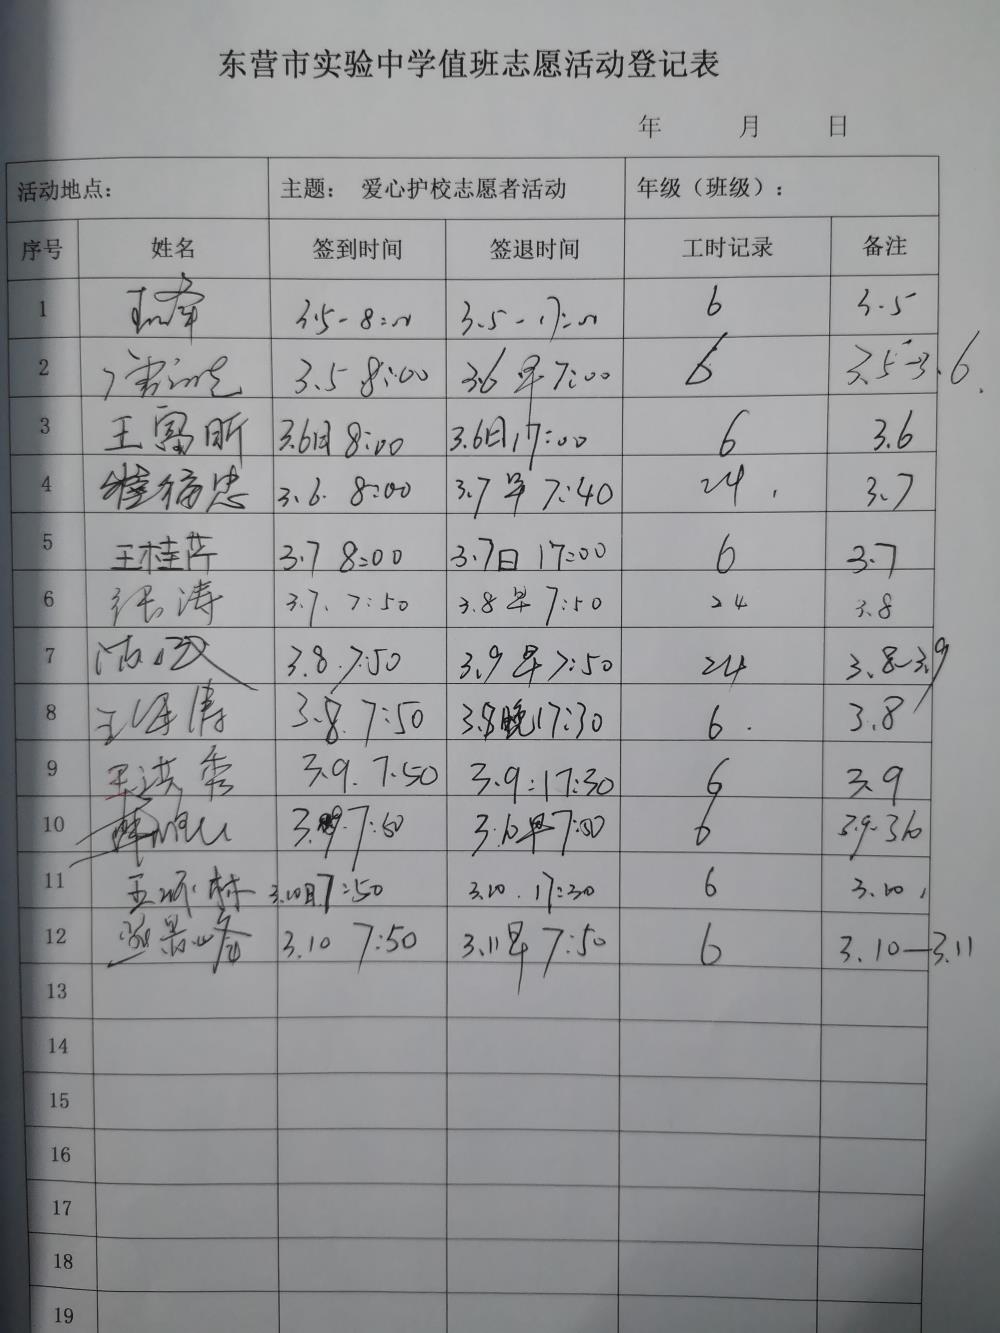 东营市实验中学值班志愿活动登记表
年 月 日
活动地点: 主题: 爱心护校志愿者活动 年级(班级):
序号 姓名 签到时间 签退时间 工时记录 备注
1 3.5-8:00 3.5-17:00 6 3.5
2 3.5 8:00 3.6早7:00 6 3.5-3.6
3 王富昕 3.6日8:00 3.6日17:00 6 3.6
4 3.6. 8:00 3.7早7:40 24 3.7
5 王桂芹 3.7 8:00 3.7日17:00 6 3.7
6 张涛 3.7. 7:50 3.8早7:50 24 3.8
7 3.8.7:50 3.9早7:50 24 3.8-3.9
8 3.8.7:50 3.8晚17:30 6 3.8
9 王洪秀 3.9.7:50 3.9:17:30 6 3.9
10 3.10早7:00 6 3.9-3.10
11 7:50 3.10.17:30 6 3.10
12 3.10 7:50 3.11早7:50 6 3.10—3.11
13
14
15
16
17
18
19